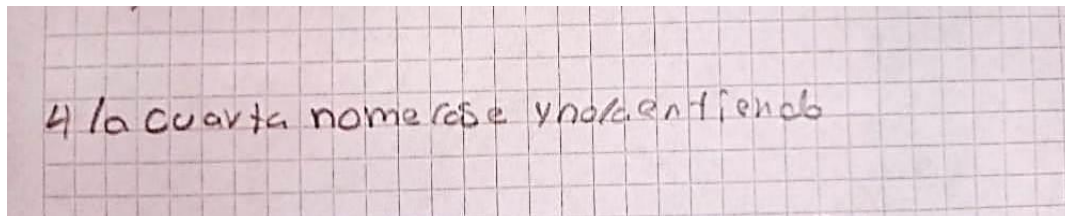 4 la cuarta nome rose y no la entiendo